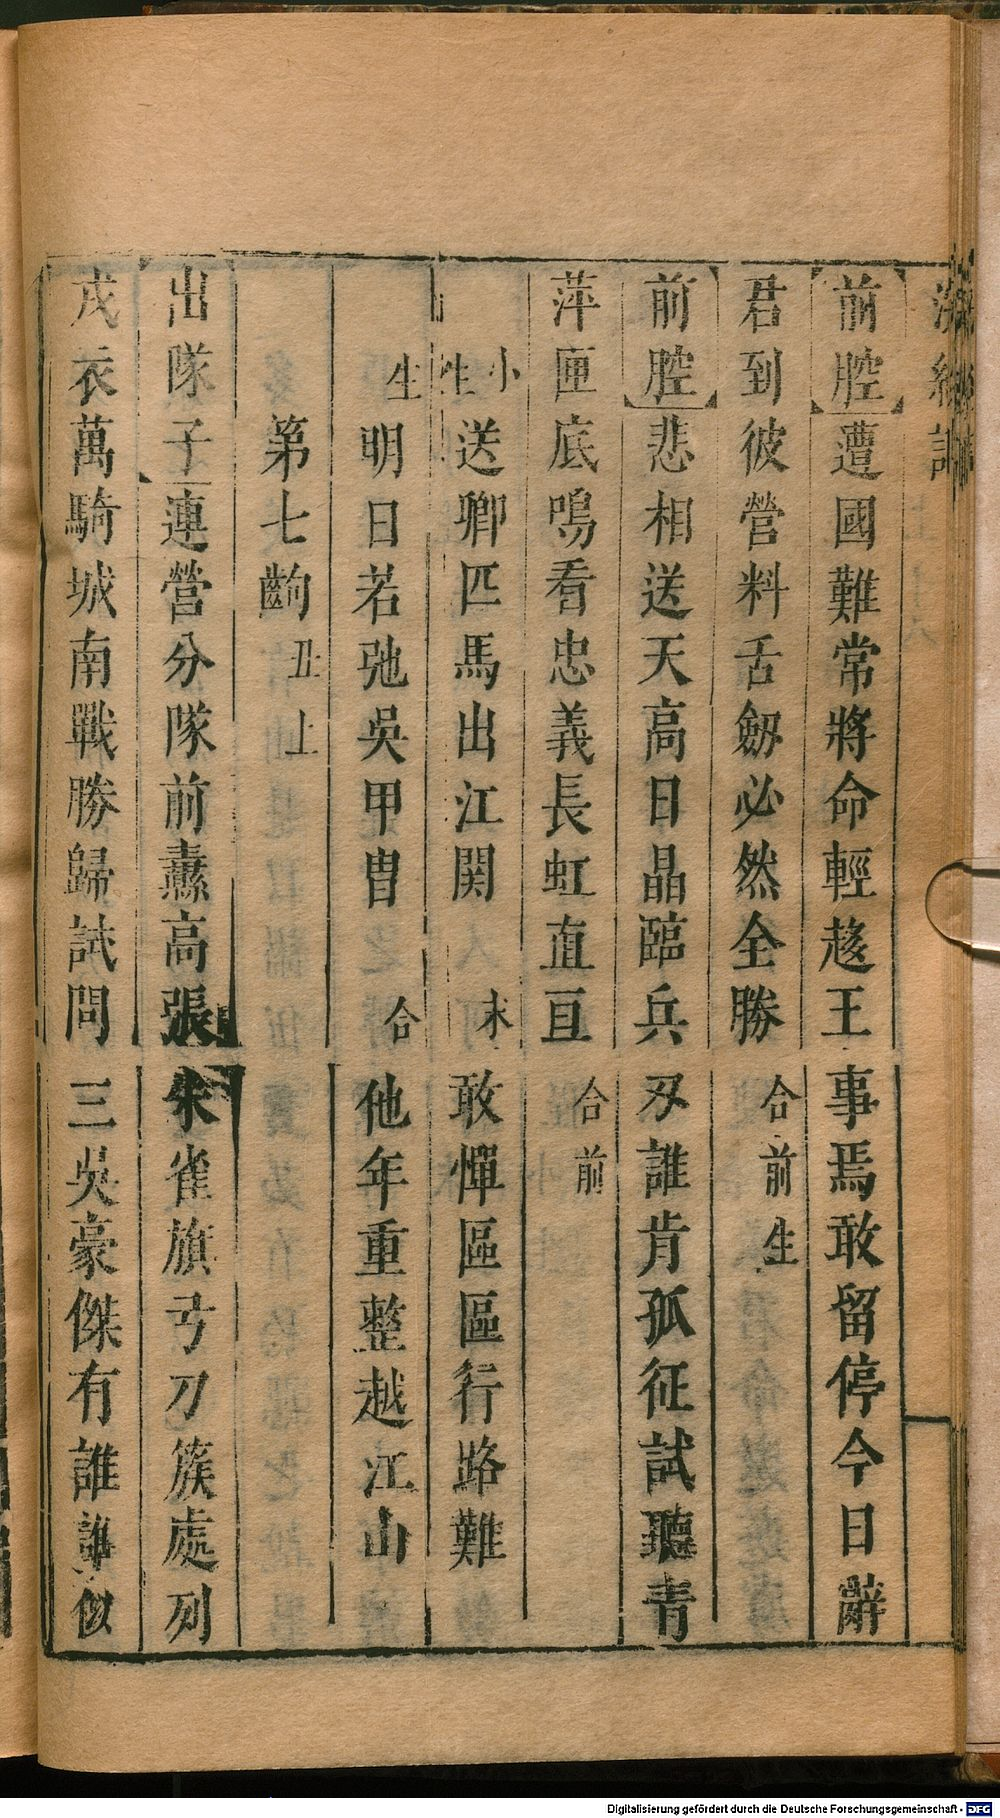 浣紗記
前腔 遭國難常將命輕趍王事焉敢留停今日辭
君到彼營料舌劒必然全勝 合前 生
前腔 悲相送天高日晶臨兵刄誰肯孤征試聽青
萍匣底鳴看忠義長虹直亘 合前
小生 送卿匹馬出江関 末 敢憚區區行路難
生 明日若弛吳甲冑 合 他年重整越江山
第七齣 丑上
出隊子 連營分隊前纛高張朱雀旗弓刀簇處列
戎衣萬騎城南戰勝歸試問三吳豪傑有誰誰似
Digitalisierung gefördert durch die Deutsche Forschungsgemeinschaft - DFG